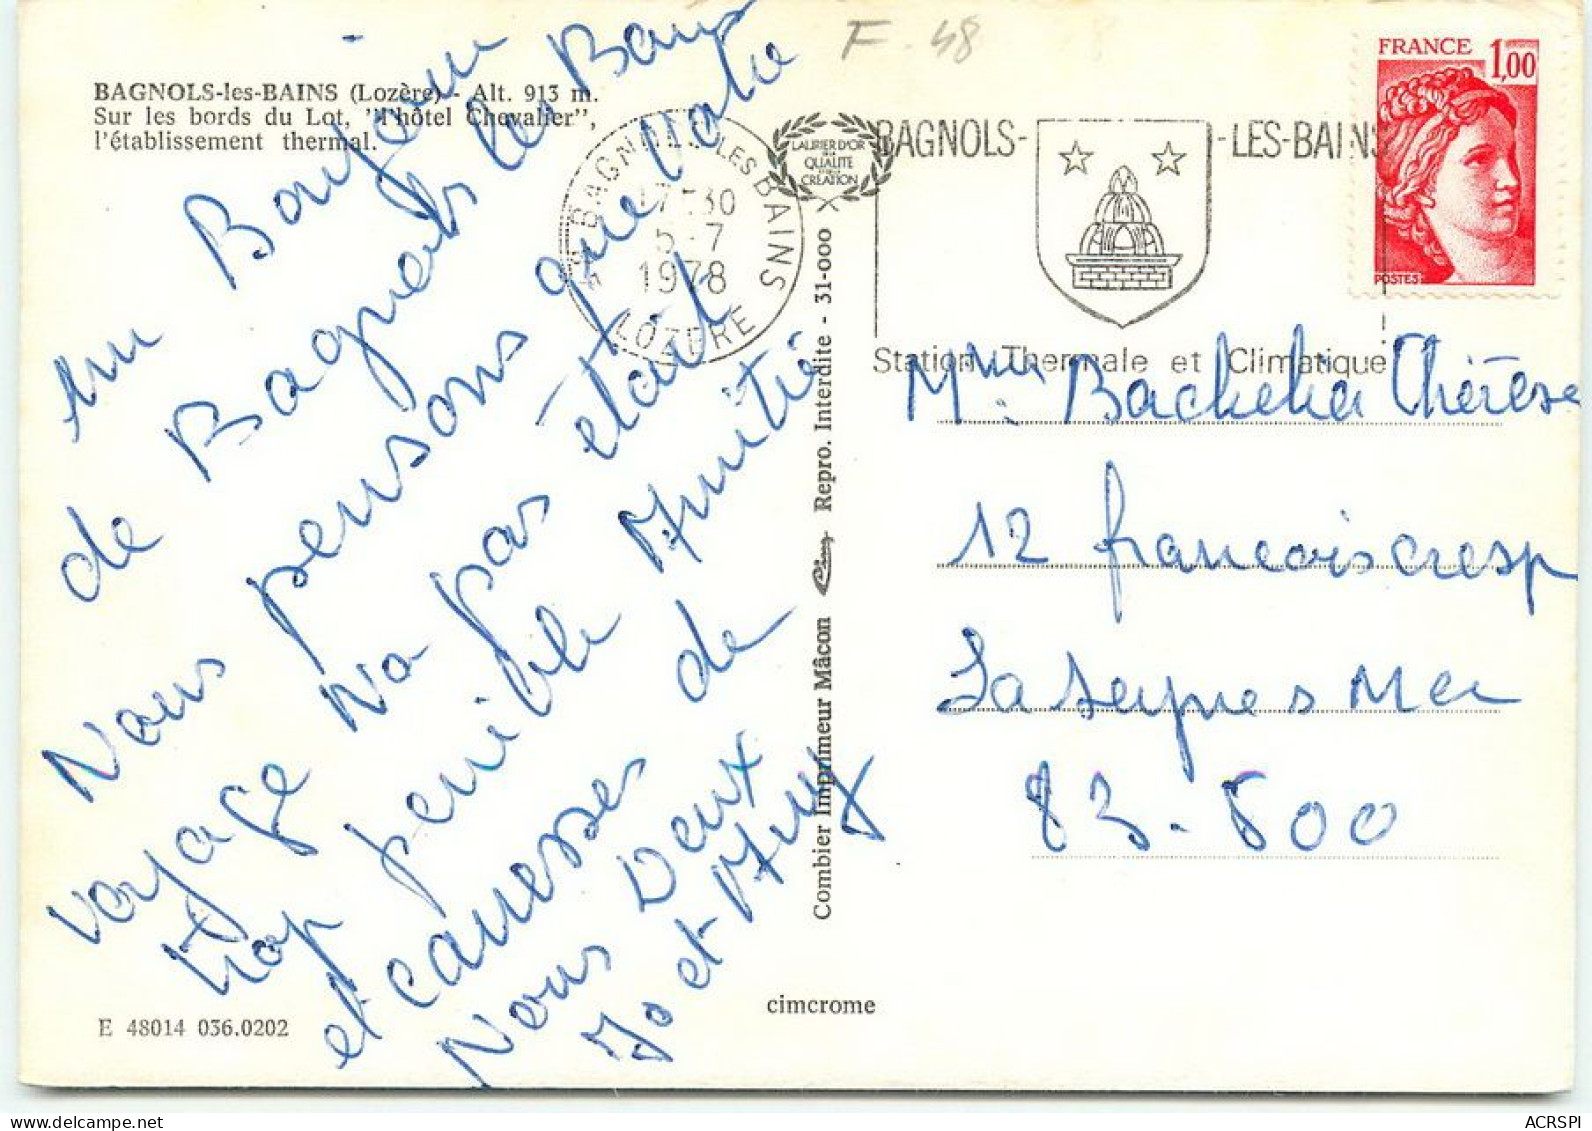 F. 48
BAGNOLS-les-BAINS (Lozère) - Alt. 913 m.
Sur les bords du Lot, "l'hôtel Chevalier",
l'établissement thermal.
un Bonjour
de Bagnols les Bains
Nous pensons que votre
voyage n'a pas était
trop penible Amitié
et caresses de
Nous Deux
Jo et Amy
E 48014 036.0202
cimcrome
Combier Imprimeur Mâcon Cim Repro. Interdite - 31-000
LAURIER D'OR
DE LA
QUALITE
CREATION
48 BAGNOLS-LES-BAINS
17-30
5-7
1978
LOZERE
BAGNOLS- -LES-BAINS
Station Thermale et Climatique
FRANCE 1,00
POSTES
Mme Bachelier Thérèse
12 francois cresp
La Seynes Mer
83-500
ACRSPI